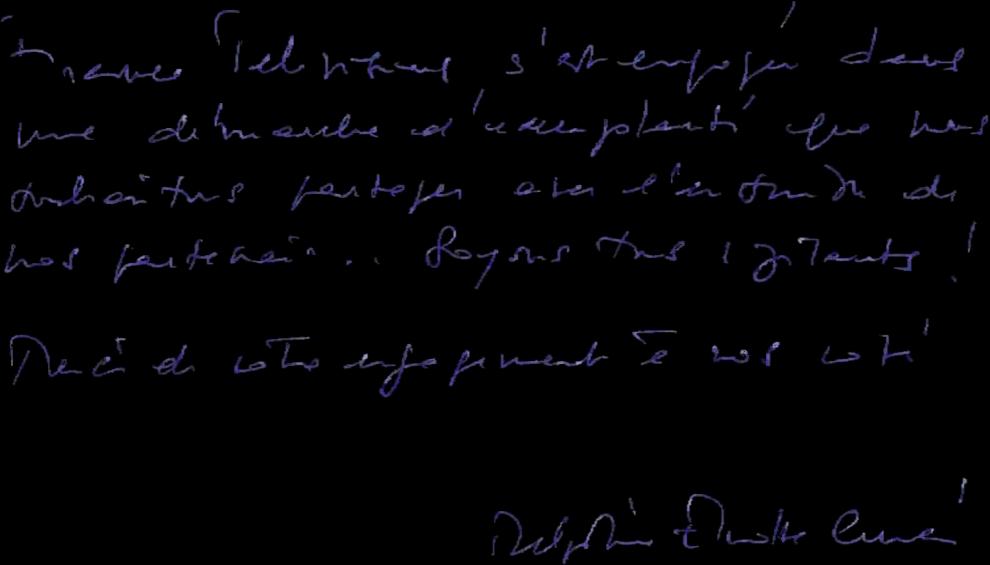 France Télévisions s'est engagée dans
une démarche d'exemplarité que nous
souhaitons partager avec l'ensemble de
nos partenaires. Soyons tous vigilants !
Merci de votre engagement à nos côtés
Delphine Ernotte Cunci